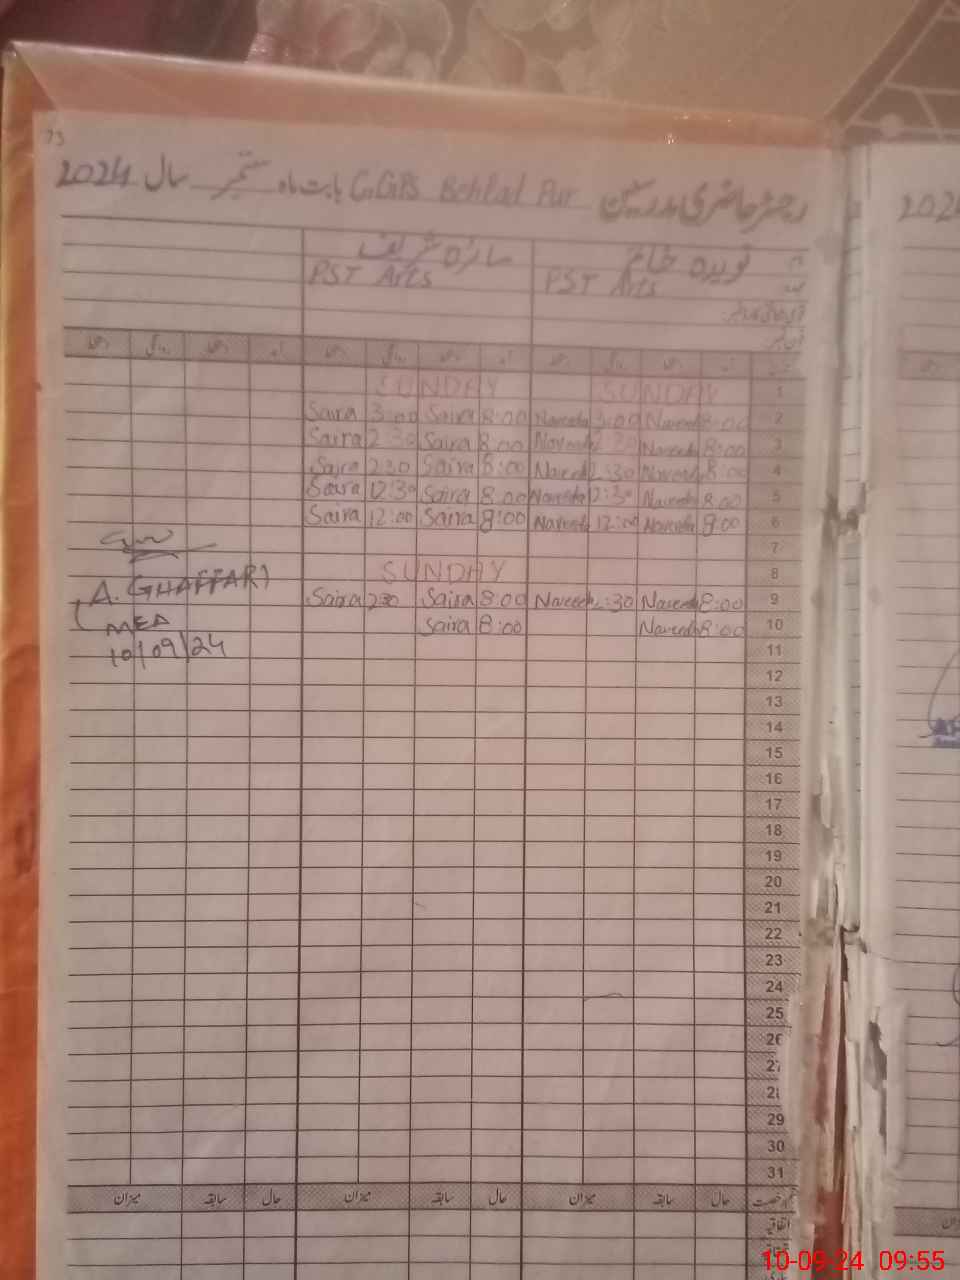 73
رجسٹر حاضری مدرسین GGPS Behlol Pur بابت ماہ ستمبر سال 2024
نویدہ خانم سائرہ شریف
PST Arts PST Arts
SUNDAY SUNDAY 1
Saira 3:00 Saira 8:00 Naveeda 3:00 Naveeda 8:00 2
Saira 2:30 Saira 8:00 Naveeda 2:30 Naveeda 8:00 3
Saira 2:30 Saira 8:00 Naveeda 2:30 Naveeda 8:00 4
Saira 12:30 Saira 8:00 Naveeda 12:30 Naveeda 8:00 5
Saira 12:00 Saira 8:00 Naveeda 12:00 Naveeda 8:00 6
7
SUNDAY 8
Saira 2:30 Saira 8:00 Naveeda 2:30 Naveeda 8:00 9
Saira 8:00 Naveeda 8:00 10
A. GHAFFAR
MEA
10/09/24
11
12
13
14
15
16
17
18
19
20
21
22
23
24
25
26
27
28
29
30
31
حال سابقہ میزان حال سابقہ میزان حال سابقہ میزان
اتفاقیہ
2024
10-09-24 09:55